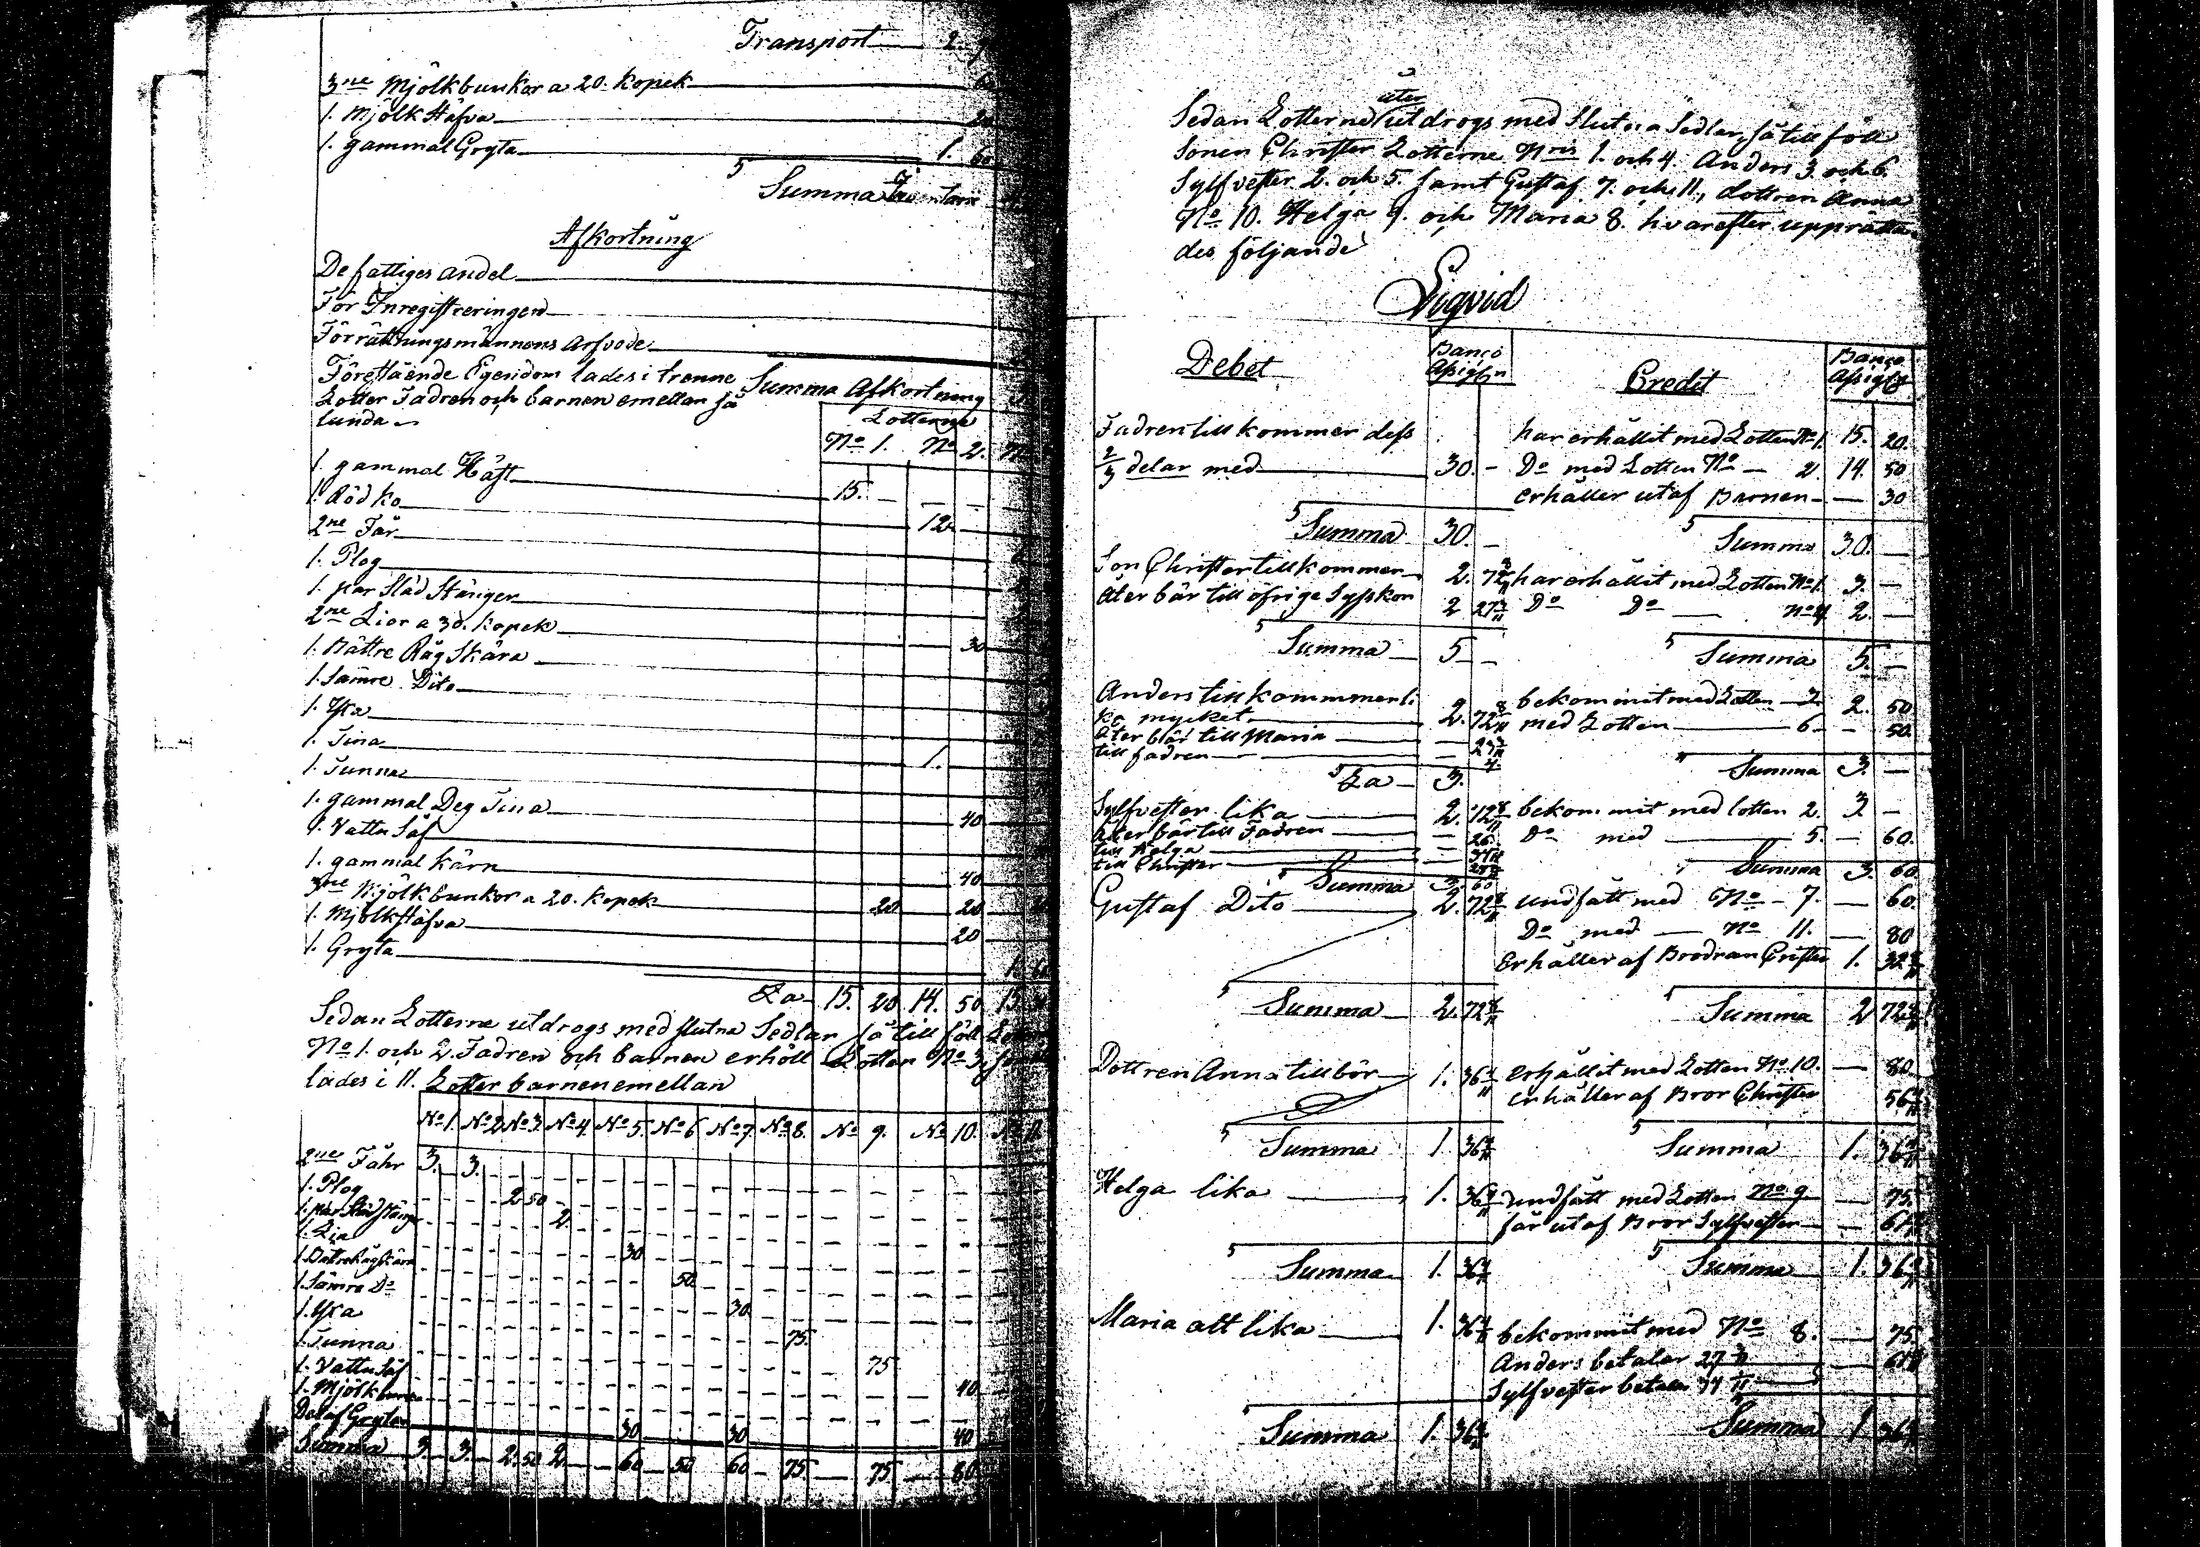 Transport 2.
3ne Mjölkbunkor a 20. kopek 60
1. Mjölk Stäfva 20
1. gammal Gryta 1. 60
Summa Inventarii
Afkortning
De fattiges andel
För Inregistreringen
Förrättningsmännens arfvode
Summa Afkortning
Förestående Egendom lades i trenne
Lotter Fadren och barnen emellan så
lunda
Lotterne
No 1. No 2.
1. gammal Häst 15. —
1. Röd ko 12. —
2ne Får
1. Plog
1. par Släd Stänger
2ne Lior a 30. kopek 30
1. Bättre Råg Skära
1. Sämre Dito
1. Yxa
1. Tina 1.
1. Tunna
1. gammal Deg Tina 40
1. Vattu Såf
1. gammal kärn 40
3ne Mjölkbunkor a 20. kopek 20 20 20
1. Mjölkstäfva 20
1. Gryta 1. 60
Sa 15. 20 14. 50 15.
Sedan Lotterne utdrogs med slutna Sedlar så tillföll
No 1. och 2. Fadren och barnen erhöll Lotten No 3
lades i 11. Lotter barnen emellan
No 1. No 2. No 3. No 4. No 5. No 6. No 7. No 8. No 9. No 10. No 11
2ne Fåhr 3. — 3. —
1. Plog 2 50
1. par Släd stänger 2.
1. Lia 30
1. Bättre Råg skära 50
1. Sämre Do 30
1. Yxa 75
1. Tunna 75
1. Vattu Såf 40
1. Mjölkbunka 30 30
Del af Grytan 40
Summa 3. — 3. — 2. 50 2. — 60 — 50 60 — 75 — 75 — 80
åter
Sedan Lotterne utdrogs med slutna Sedlar, så tillföll
Sonen Christer Lotterne Nris 1. och 4. Anders 3. och 6.
Sylfvester 2. och 5. samt Gustaf 7. och 11., dottren Anna
No 10. Helga 9. och Maria 8. hvarefter upprätta
des följande
Liqvid
Debet Banco Assig:n Credit Banco Assig:n
Fadren tillkommer dess har erhållit med Lotten No 1. 15. 20.
2/3 delar med 30. — Do med Lotten No — 2. 14. 50
erhåller utaf Barnen — 30
Summa 30. — Summa 30. —
Son Christer tillkommer 2. 72 8/11 har erhållit med Lotten No 1. 3. —
Återbär till öfrige Syskon 2 27 3/11 Do Do No 4 2. —
Summa 5 — Summa 5. —
Anders tillkommmer li bekommit med Lotten 3 2. 50
ka mycket 2. 72 8/11 med Lotten 6 — 50.
Återbär till Maria — 27 3/11
till fadren — — 4.
Sa 3. Summa 3. —
Sylfvester lika 2. 72 8/11 bekommit med lotten 2. 3 —
Återbär till Fadren — 26. Do med 5. — 60.
till Helga
till Christer
Summa 3. 60 Summa 3. 60
Gustaf Dito 2. 72 8/11 undfått med No 7. — 60.
Do med — No 11. — 80
Erhåller af Brodran Crister 1. 32 8/11
Summa 2. 72 8/11 Summa 2 72 8/11
Dottren Anna tillbör 1. 36 4/11 erhållit med Lotten No 10. — 80.
erhåller af Bror Christer 56 4/11
Summa 1. 36 4/11 Summa 1. 36 4/11
Helga lika 1. 36 4/11 undfått med Lotten No 9 — 75.
får utaf Bror Sylfvester — 61 4/11
Summa 1. 36 4/11 Summa 1. 36 4/11
Maria att lika 1. 36 4/11 bekommit med No 8. — 75.
Anders betalar 27 3/11 — 61 4/11
Sylfvester betalar 34 1/11
Summa 1. 36 4/11 Summa 1 36 4/11